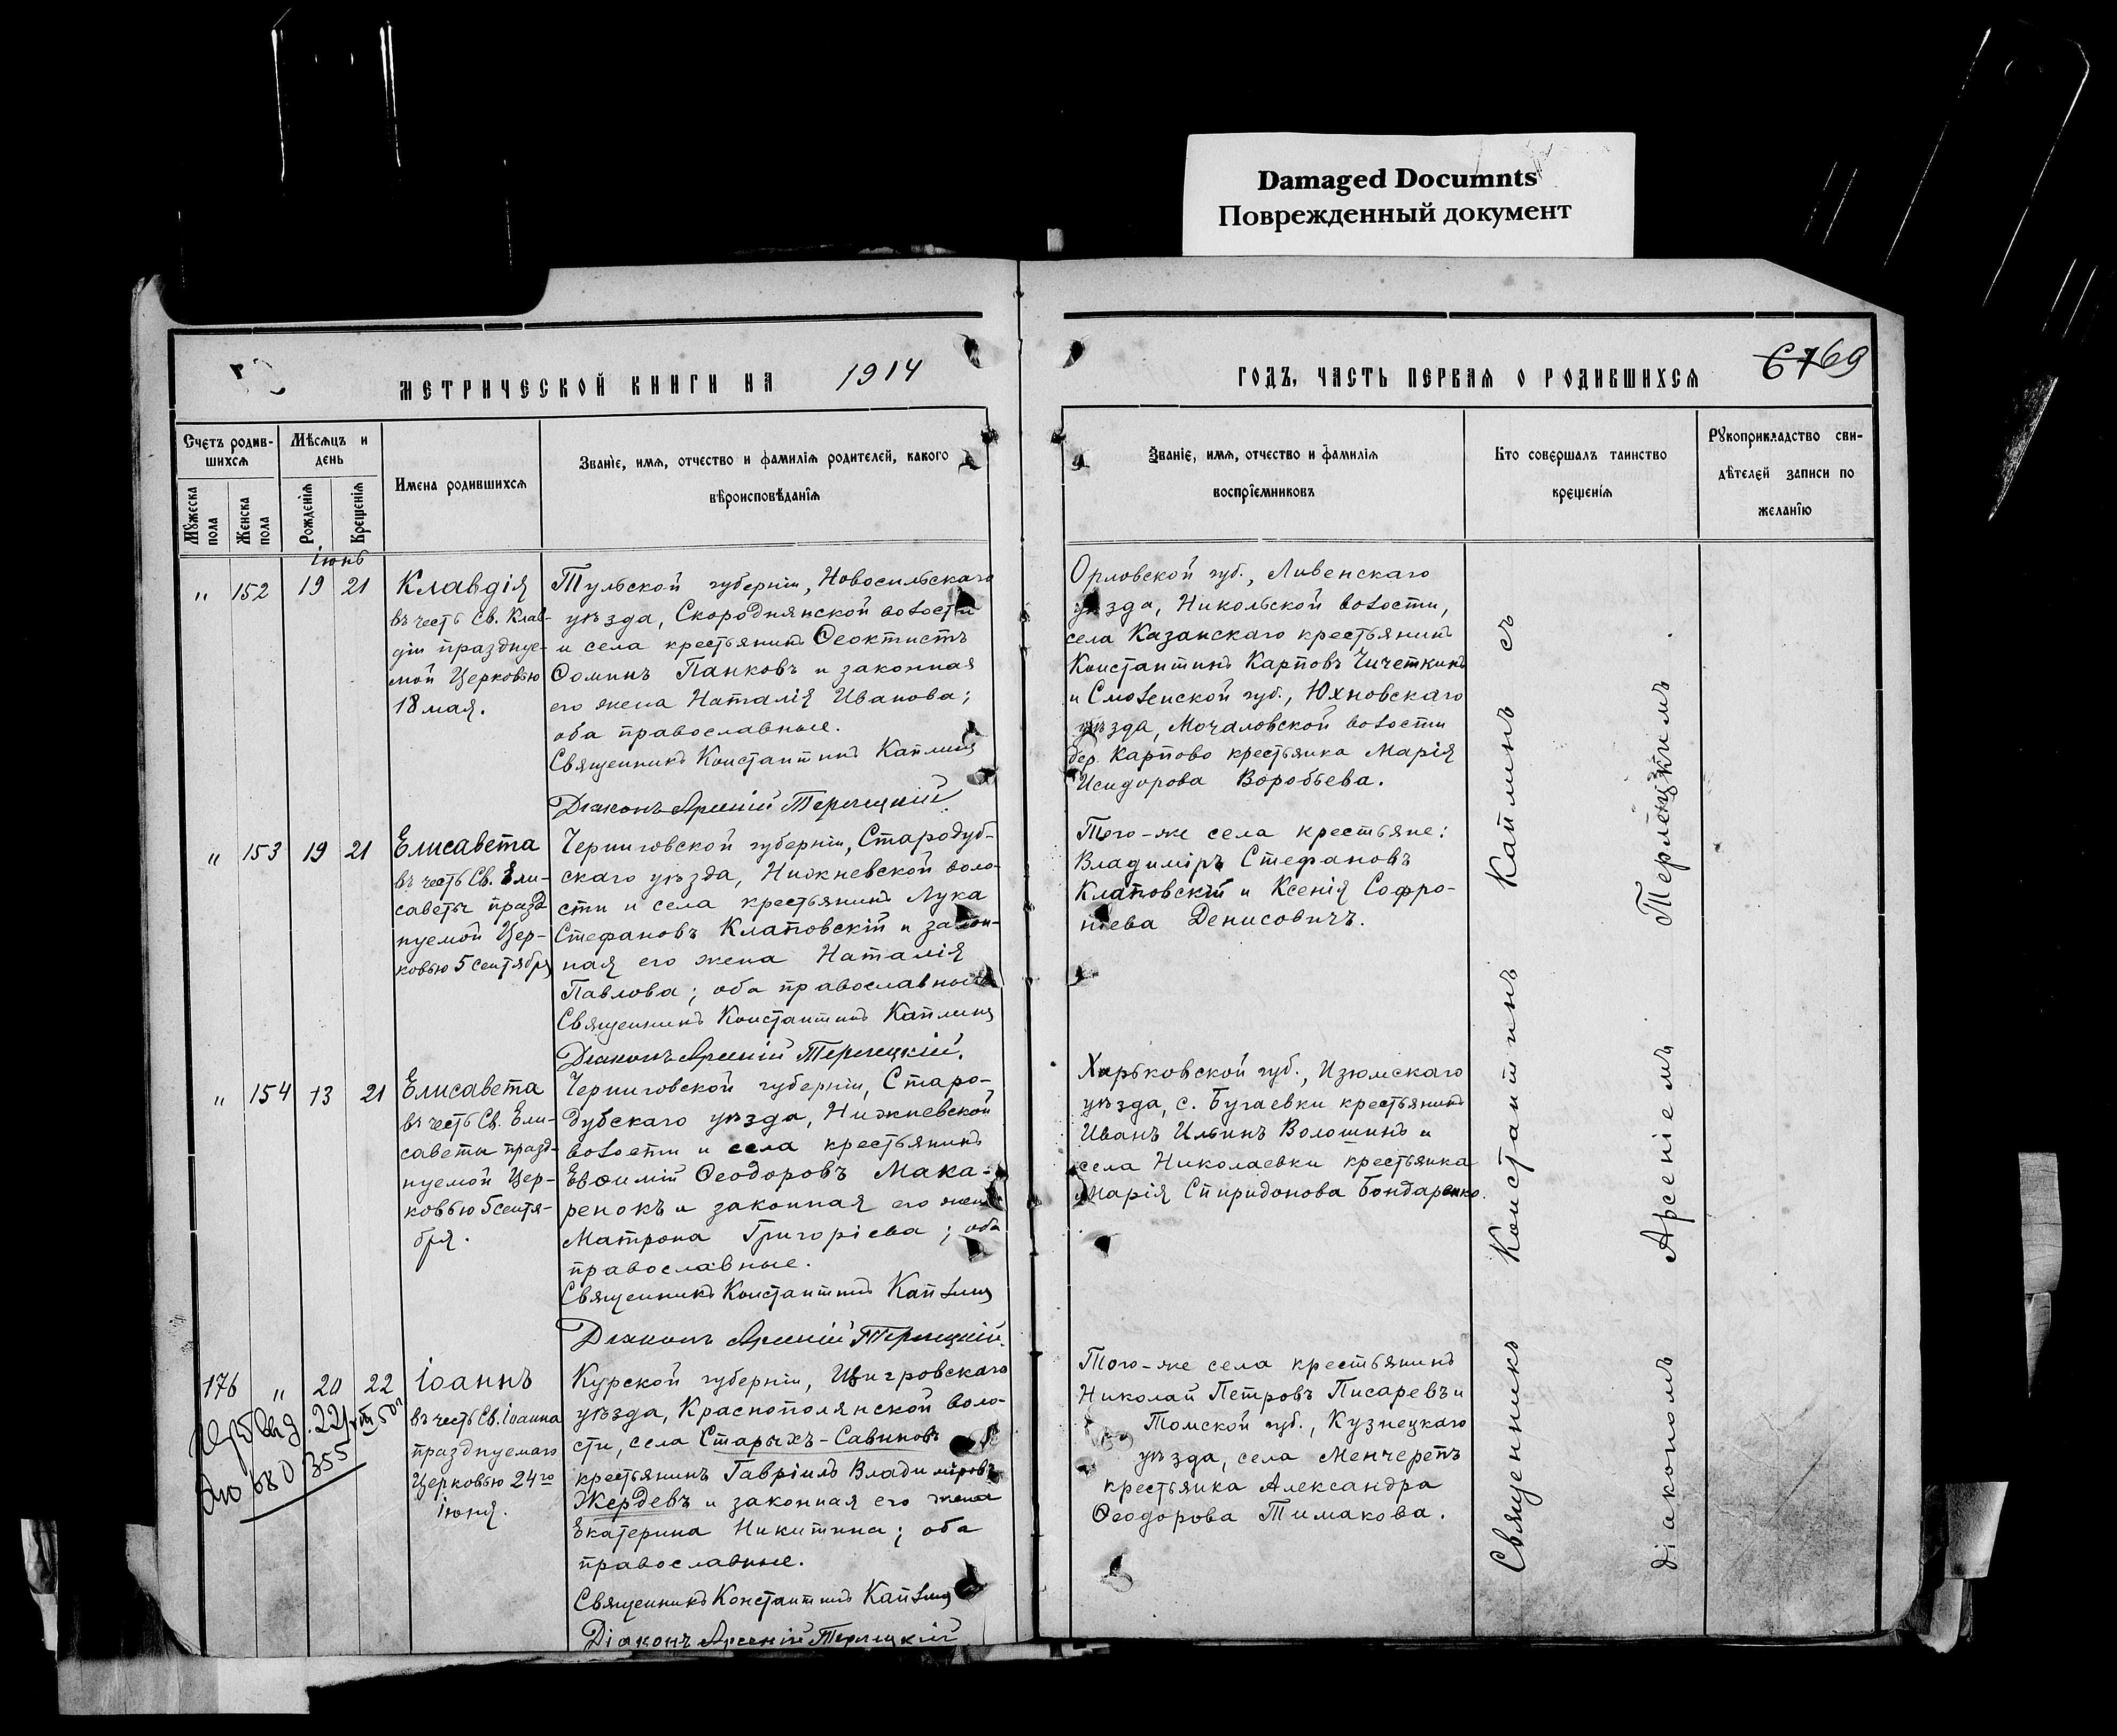 Damaged Documnts
Поврежденный документ
МЕТРИЧЕСКОЙ КНИГИ НА 1914
ГОДЪ, ЧАСТЬ ПЕРВАЯ О РОДИВШИХСЯ
69
Счетъ родив-
шихся
Мѣсяцъ и
день
Мужеска
пола
Женска
пола
Рожденія
Крещенія
Имена родившихся
Званіе, имя, отчество и фамилія родителей, какого
вѣроисповѣданія
Званіе, имя, отчество и фамилія
воспріемниковъ
Кто совершалъ таинство
крещенія
Рукоприкладство сви-
дѣтелей записи по
желанію
Іюнь
" 152 19 21
Клавдія
въ честь Св. Клав-
діи празднуе-
мой Церковью
18 мая.
Тульской губерніи, Новосильскаго
уѣзда, Скороднянской волости
и села крестьянинъ Ѳеоктистъ
Ѳоминъ Панковъ и законная
его жена Наталія Иванова;
оба православные.
Священникъ Константинъ Каплинъ
Діаконъ Арсеній Терлецкій.
Орловской губ., Ливенскаго
уѣзда, Никольской волости,
села Казанскаго крестьянинъ
Константинъ Карповъ Чичеткинъ
и Смоленской губ., Юхновскаго
уѣзда, Мочаловской волости
дер. Карпово крестьянка Марія
Исидорова Воробьева.
" 153 19 21
Елисавета
въ честь Св. Ели-
саветы празд
нуемой Цер-
ковью 5 сентября
Черниговской губерніи, Стародуб-
скаго уѣзда, Нижневской воло-
сти и села крестьянинъ Лука
Стефановъ Клаповскій и закон-
ная его жена Наталія
Павлова; оба православные
Священникъ Константинъ Каплинъ
Діаконъ Арсеній Терлецкій.
Того-же села крестьяне:
Владиміръ Стефановъ
Клаповскій и Ксенія Софро-
ніева Денисовичъ.
" 154 13 21
Елисавета
въ честь Св. Ели-
саветы празд-
нуемой Цер-
ковью 5 сентя-
бря.
Черниговской губерніи, Старо-
дубскаго уѣзда, Нижневской
волости и села крестьянинъ
Евѳимій Ѳеодоровъ Мака-
ренокъ и законная его жена
Матрона Григоріева; оба
православные.
Священникъ Константинъ Каплинъ
Діаконъ Арсеній Терлецкій.
Харьковской губ., Изюмскаго
уѣзда, с. Бугаевки крестьянинъ
Иванъ Ильинъ Волошинъ и
села Николаевки крестьянка
Марія Спиридонова Бондаренко.
176 " 20 22
Іоаннъ
въ честь Св. Іоанна
празднуемаго
Церковью 24го
Іюня.
355
Курской губерніи, Щигровскаго
уѣзда, Краснополянской воло-
сти, села Старыхъ-Савиновъ
крестьянинъ Гавріилъ Владиміровъ
Жердевъ и законная его жена
Екатерина Никитина; оба
православные.
Священникъ Константинъ Каплинъ
Діаконъ Арсеній Терлецкій
Того-же села крестьянинъ
Николай Петровъ Писаревъ и
Томской губ., Кузнецкаго
уѣзда, села Менчерепъ
крестьянка Александра
Ѳеодорова Тимакова.
Священникъ Константинъ Каплинъ съ
діакономъ Арсеніемъ Терлецкимъ.